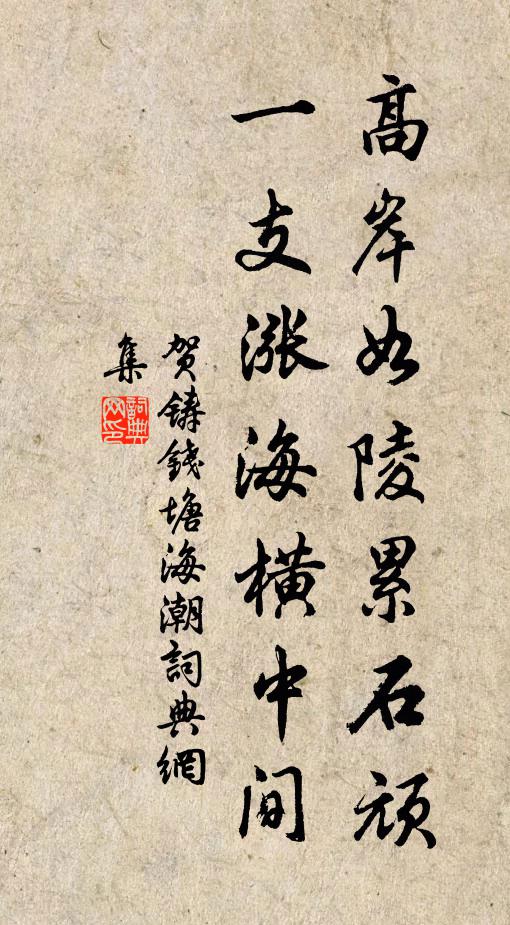 高岸如陵累石頑
一支漲海橫中間
賀鑄錢塘海潮詞典網
集
詞典網印